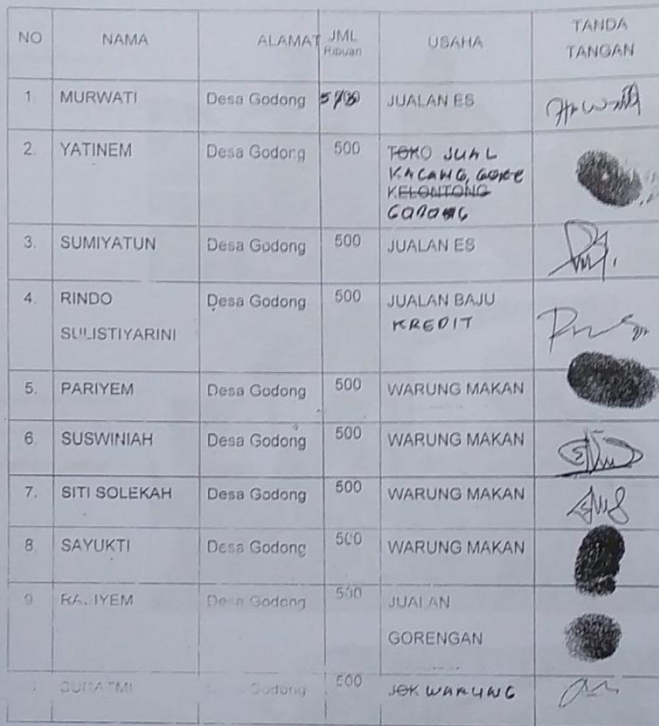 NO NAMA ALAMAT JML Ribuan USAHA TANDA TANGAN
1. MURWATI Desa Godong JUALAN ES
2. YATINEM Desa Godong 500 TOKO JUAL
KACANG,
KELONTONG
3. SUMIYATUN Desa Godong 500 JUALAN ES
4. RINDO Desa Godong 500 JUALAN BAJU
SULISTIYARINI KREDIT
5. PARIYEM Desa Godong 500 WARUNG MAKAN
6. SUSWINIAH Desa Godong 500 WARUNG MAKAN
7. SITI SOLEKAH Desa Godong 500 WARUNG MAKAN
8. SAYUKTI Desa Godong 500 WARUNG MAKAN
9 Desa Godong 500 JUALAN
GORENGAN
Godong 500 WARUNG